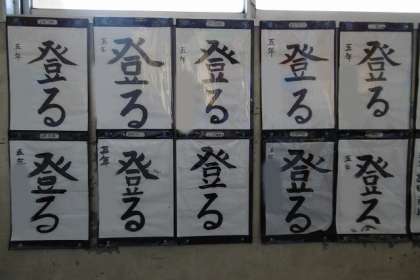 登る
五年
登る
五年
登る
五年
登る
五年
登る
五年
登る
五年
登る
五年
登る
登る
登る
五年